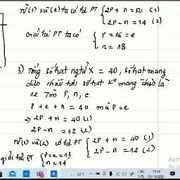 từ (1) và (2) ta có hệ PT { 2P + n = 50 (1)
2P - n = 14 (2)
giải hệ PT ta có { P = 16 = e
n = 18
3) Tổng số hạt ng tử X = 40, số hạt mang
điện nhiều hơn số hạt k° mang điện là
12 Tìm P, n, e
P + e + n = 40 mà P = e
=> 2P + n = 40 (1)
2P - n = 12 (2)
từ (1) và (2) có hệ PT { 2P + n = 40 (1)
2P - n = 12 (2)
giải hệ PT { P = e = 13
n = 14